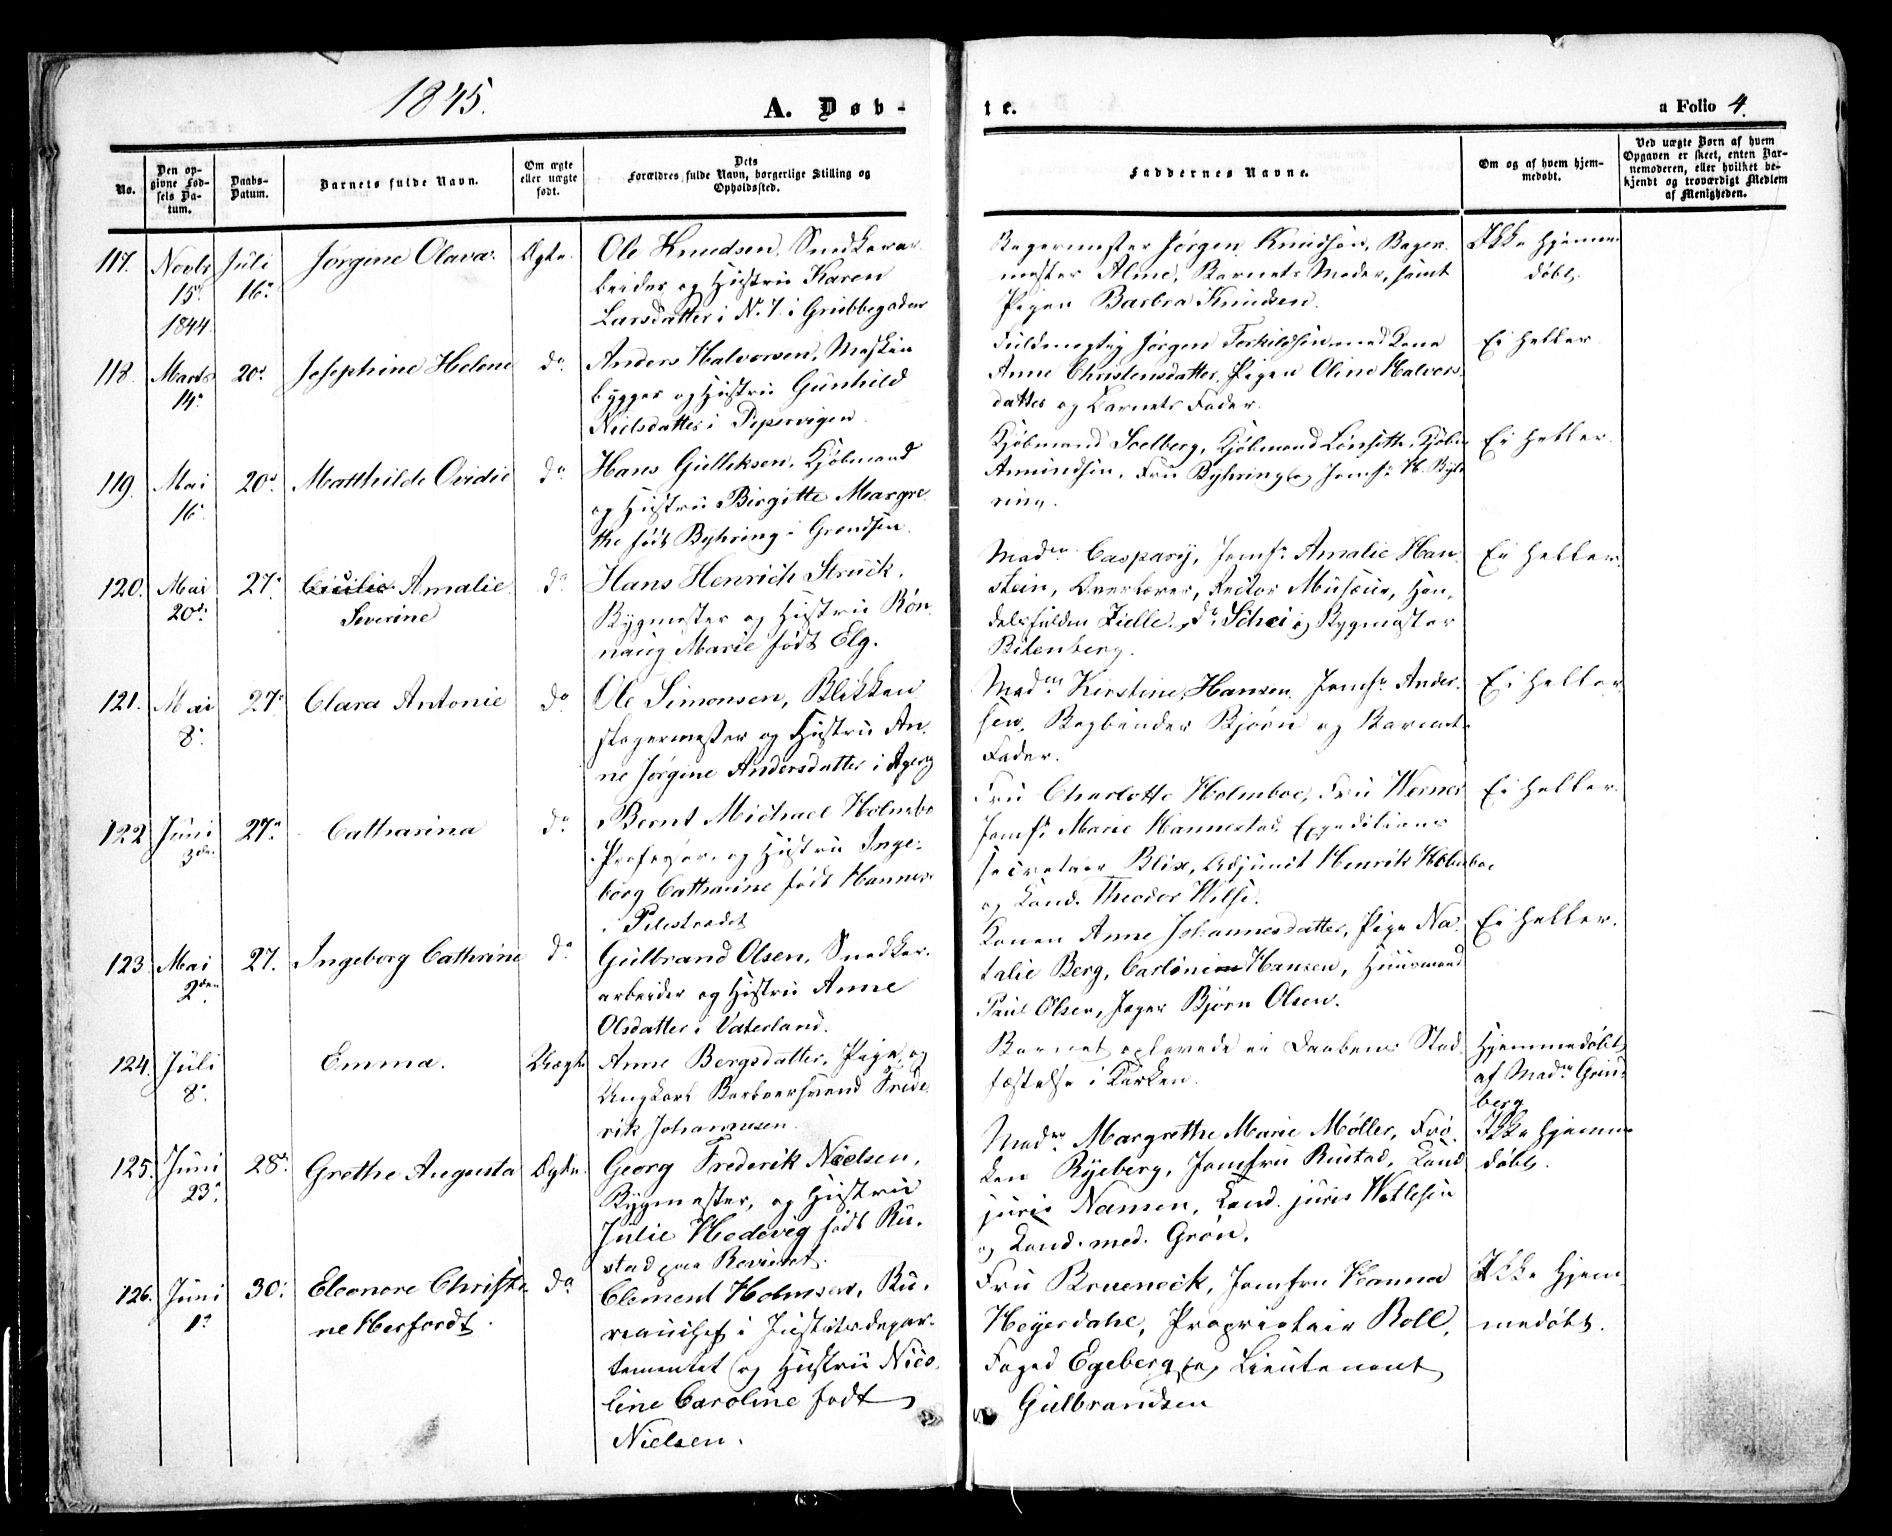 1845.
A. Døb-
te.
a Folio 4.
No.
Den op-
givne Fød-
sels Da-
tum.
Daabs-
Datum.
Barnets fulde Navn.
Om ægte
eller uægte
født.
Dets
Forældres fulde Navn, borgerlige Stilling og
Opholdssted.
Faddernes Navne.
Om og af hvem hjem-
medøbt.
Ved uægte Børn af hvem
Opgaven er skeet, enten Bar-
nemoderen, eller hvilket be-
kjendt og troværdigt Medlem
af Menigheden.
117.
Novbr
15.
1844
Juli
16.
Jørgine Olava.
Ægte.
Ole Knudsen, Snedkerar-
beider og Hustru Karen
Larsdatter i No. 7 i Grubbegaden
Bagermester Jørgen Knudsen, Bager-
mester Alme, Barnets Moder, samt
Pigen Barbra Knudsen.
Ikke hjemme
døbt.
118.
Marts
14.
20.
Josephine Helene
do
Anders Halvorsen, Maskin
bygger og Hustru Gunhild
Nielsdatter i Pipervigen.
Fuldmægtig Jørgen Terkildsen med Kone
Anne Christensdatter, Pigen Oline Halvors
datter og Barnets Fader.
Ei heller.
119.
Mai
16.
20.
Matthilde Ovidie
do
Hans Gulliksen, Kjøbmand
og Hustru Birgitte Margre
the født Byhring i Grændsen.
Kjøbmand Soelberg, Kjøbmand
Amundsen, Fru Byhring og Jomfr. H. Byh
ring.
Ei heller.
120.
Mai
20.
27.
Cicilie Amalie
Severine
do
Hans Henrich Struck,
Bygmester og Hustru Røn
naug Marie født Elg.
Madm Caspary, Jomfr. Amalie Han
stein, Overlærer, Rector Musæus, Han
delsfuldm Zielle, do Schei og Bygmester
Bitenberg.
Ei heller.
121.
Mai
8.
27.
Clara Antonie
do
Ole Simonsen, Blikken
slagermester og Hustru An
ne Jørgine Andersdatter i Agerg
Madm Kirstine Hansen, Jomfr. Ander-
sen, Bogbinder Bjørn og Barnets
Fader.
Ei heller.
122
Juni
3die
27.
Catharina
do
Bernt Michael Holmboe
Professor, og Hustru Inge-
borg Catharine født Hannes-
i Pilestrædet
Fru Charlotte Holmboe, Fru Werner
Jomfr. Marie Hannestad, Expeditions
secretair Blix, Adjunct Henrik Holmboe
og Cand. Theodor Kilse.
Ei heller.
123
Mai
2den
27.
Ingeborg Cathrine
do
Gulbrand Olsen, Snedker-
arbeider og Hustru Anne
Olsdatter i Vaterland.
Konen Anne Johannesdatter, Pige Na-
talie Berg, Hansen, Huusmand
Paul Olsen, Jæger Bjørn Olsen.
Ei heller.
124.
Juli
8.
Emma.
Uægte
Anne Bergsdatter, Pige, og
Ungkarl Barbeersvend Frede
rik Johannesen.
Barnet oplevede ei Daabens Stad
fæstelse i Kirken.
Hjemmedøbt
af Madm Grün-
berg
125.
Juni
23.
28.
Grethe Augusta
Ægte.
Georg Frederik Nielsen,
Bygmester, og Hustru
Julie Hedevig født Ru-
stad paa Revieret.
Madm Margrethe Marie Møller, Frø
ken Ryeberg, Jomfru Rustad, Cand
juris Nansen, Cand. juris Wetlesen
og Cand. med. Grøn.
Ikke hjemme
døbt.
126.
Juni
1.
30.
Eleonore Christi-
ne Herfordt.
do
Clement Holmsen, Bu-
reauchef i Justitsdepar-
tementet og Hustru Nico-
line Caroline født
Nielsen.
Fru Brueneck, Jomfru Hanna
Heyerdahl, Proprietair Boll,
Foged Egeberg og Lieutenant
Gulbrandsen
Ikke hjem
medøbt.